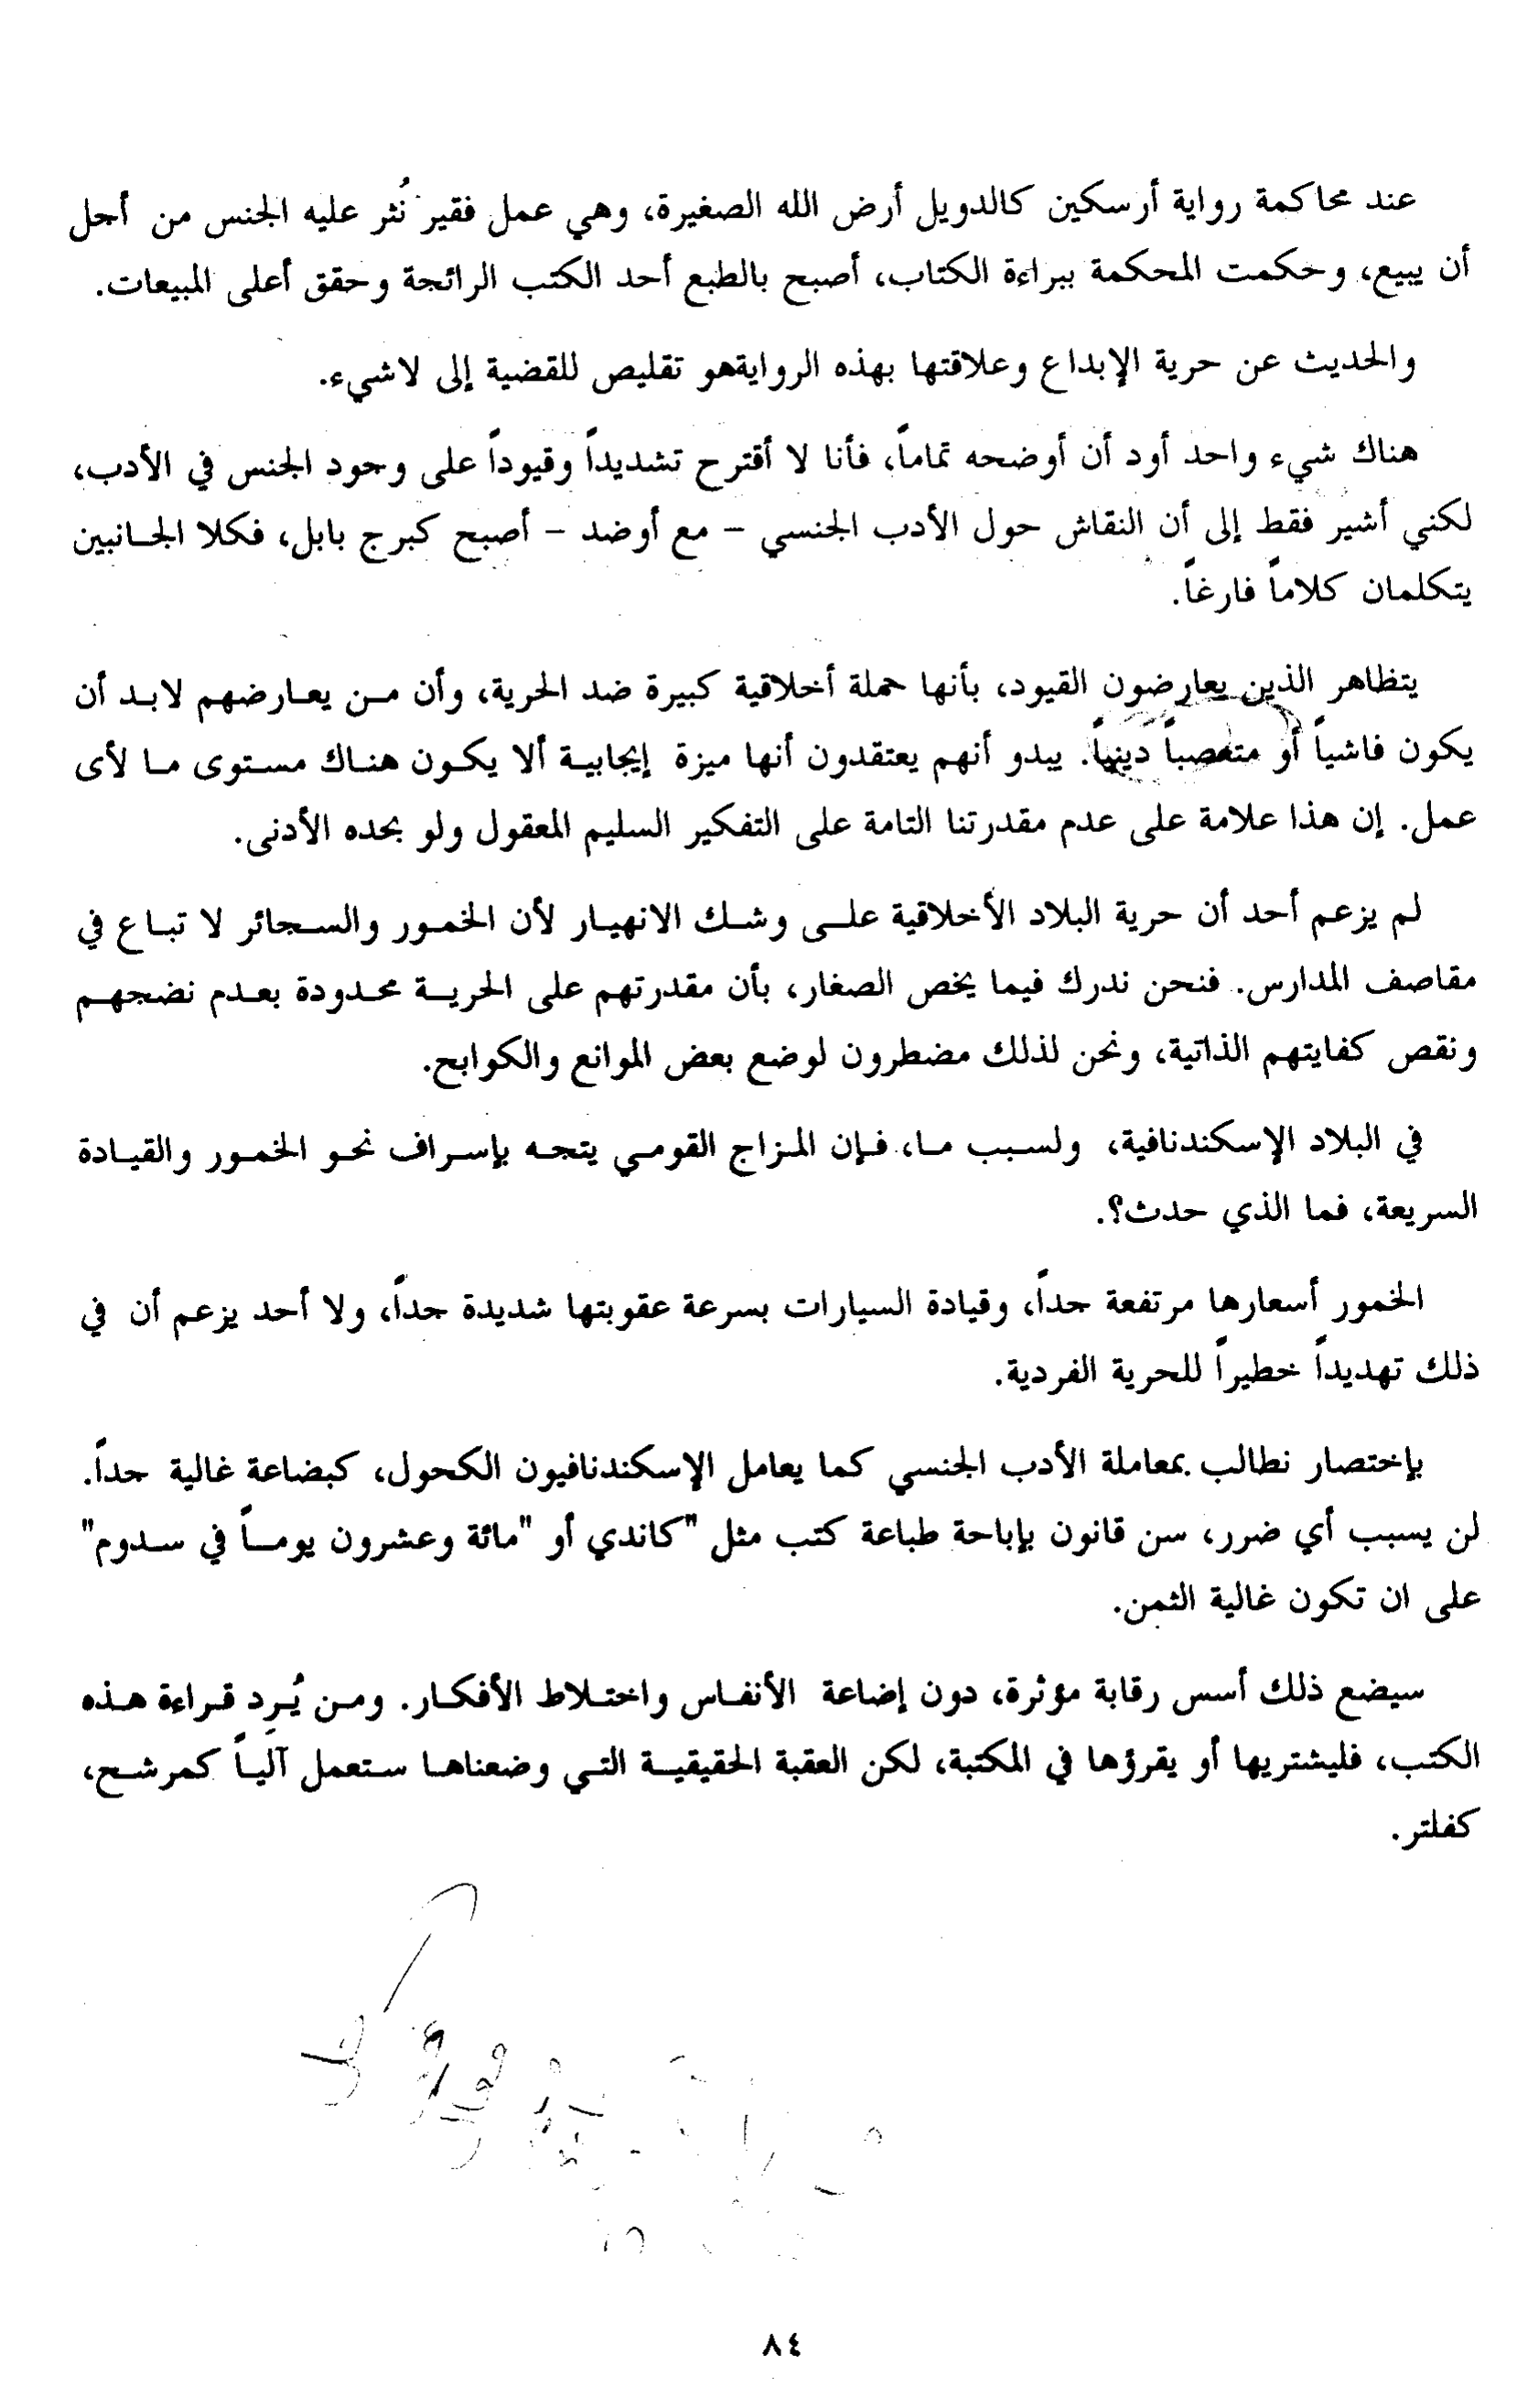 عند محاكمة رواية أرسكين كالدويل أرض الله الصغيرة، وهي عمل فقير نُثر عليه الجنس من أجل
أن يبيع، وحكمت المحكمة ببراءة الكتاب، أصبح بالطبع أحد الكتب الرائجة وحقق أعلى المبيعات.
والحديث عن حرية الإبداع وعلاقتها بهذه الروايةهو تقليص للقضية إلى لاشيء.
هناك شيء واحد أود أن أوضحه تماماً، فأنا لا أقترح تشديداً وقيوداً على وجود الجنس في الأدب،
لكني أشير فقط إلى أن النقاش حول الأدب الجنسي - مع أوضد - أصبح كبرج بابل، فكلا الجانبين
يتكلمان كلاماً فارغاً.
يتظاهر الذين يعارضون القيود، بأنها حملة أخلاقية كبيرة ضد الحرية، وأن من يعارضهم لابد أن
يكون فاشياً أو متعصباً دينياً. يبدو أنهم يعتقدون أنها ميزة إيجابية ألا يكون هناك مستوى ما لأى
عمل. إن هذا علامة على عدم مقدرتنا التامة على التفكير السليم المعقول ولو بحده الأدنى.
لم يزعم أحد أن حرية البلاد الأخلاقية على وشك الانهيار لأن الخمور والسجائر لا تباع في
مقاصف المدارس. فنحن ندرك فيما يخص الصغار، بأن مقدرتهم على الحرية محدودة بعدم نضجهم
ونقص كفايتهم الذاتية، ونحن لذلك مضطرون لوضع بعض الموانع والكوابح.
في البلاد الإسكندنافية، ولسبب ما، فإن المزاج القومي يتجه بإسراف نحو الخمور والقيادة
السريعة، فما الذي حدث؟.
الخمور أسعارها مرتفعة جداً، وقيادة السيارات بسرعة عقوبتها شديدة جداً، ولا أحد يزعم أن في
ذلك تهديداً خطيراً للحرية الفردية.
بإختصار نطالب بمعاملة الأدب الجنسي كما يعامل الإسكندنافيون الكحول، كبضاعة غالية جداً.
لن يسبب أي ضرر، سن قانون بإباحة طباعة كتب مثل "كاندي أو "مائة وعشرون يوماً في سدوم"
على ان تكون غالية الثمن.
سيضع ذلك أسس رقابة مؤثرة، دون إضاعة الأنفاس واختلاط الأفكار. ومن يُرِد قراءة هذه
الكتب، فليشتريها أو يقرؤها في المكتبة، لكن العقبة الحقيقية التي وضعناها ستعمل آلياً كمرشح،
كفلتر.
٨٤